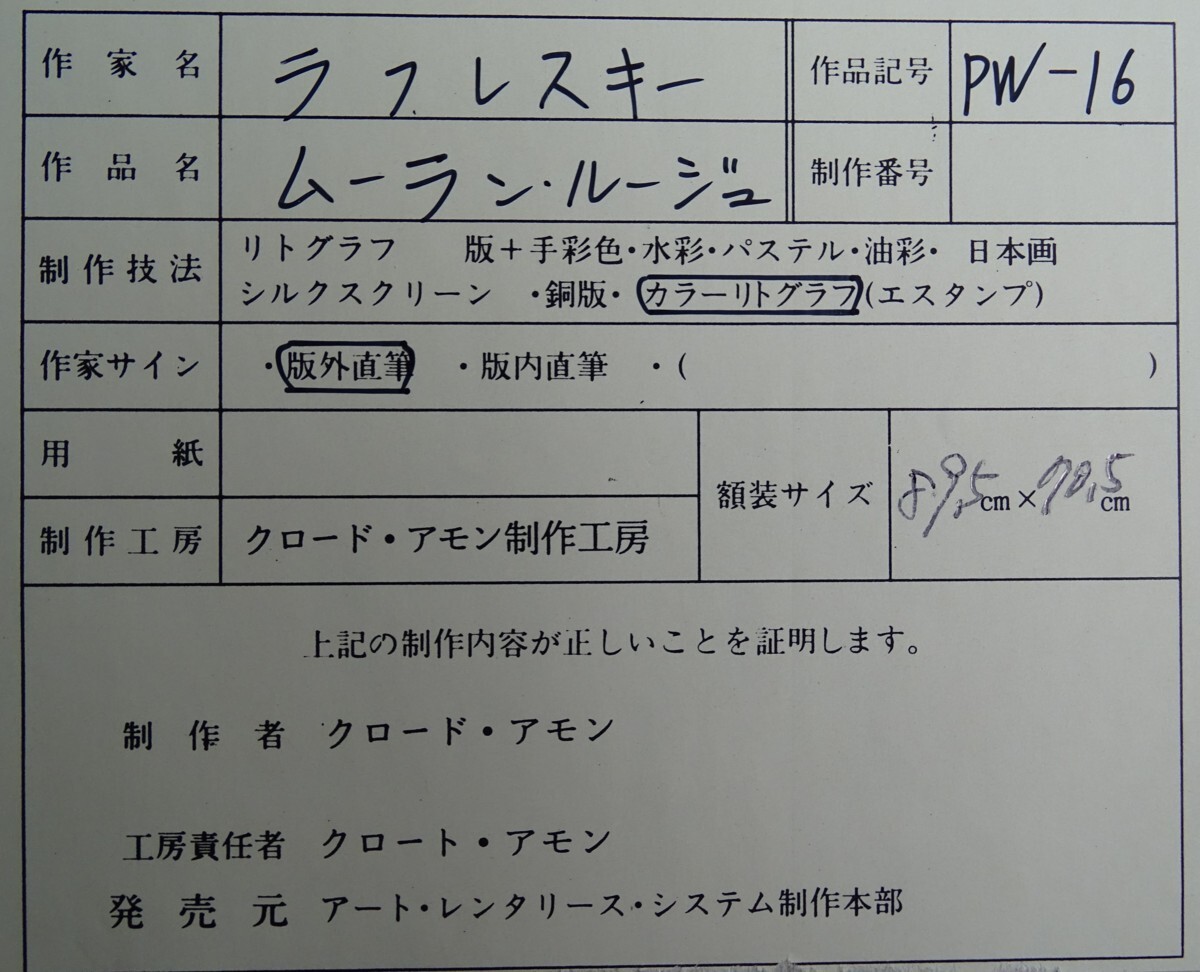 作家名 ラフレスキー 作品記号 PW-16
作品名 ムーラン・ルージュ 制作番号
制作技法 リトグラフ 版+手彩色・水彩・パステル・油彩・ 日本画
シルクスクリーン ・銅版・ カラーリトグラフ (エスタンプ)
作家サイン ・版外直筆 ・版内直筆 ・( )
用紙
額装サイズ 89,5cm×70,5cm
制作工房 クロード・アモン制作工房
上記の制作内容が正しいことを証明します。
制作者 クロード・アモン
工房責任者 クロート・アモン
発売元 アート・レンタリース・システム制作本部